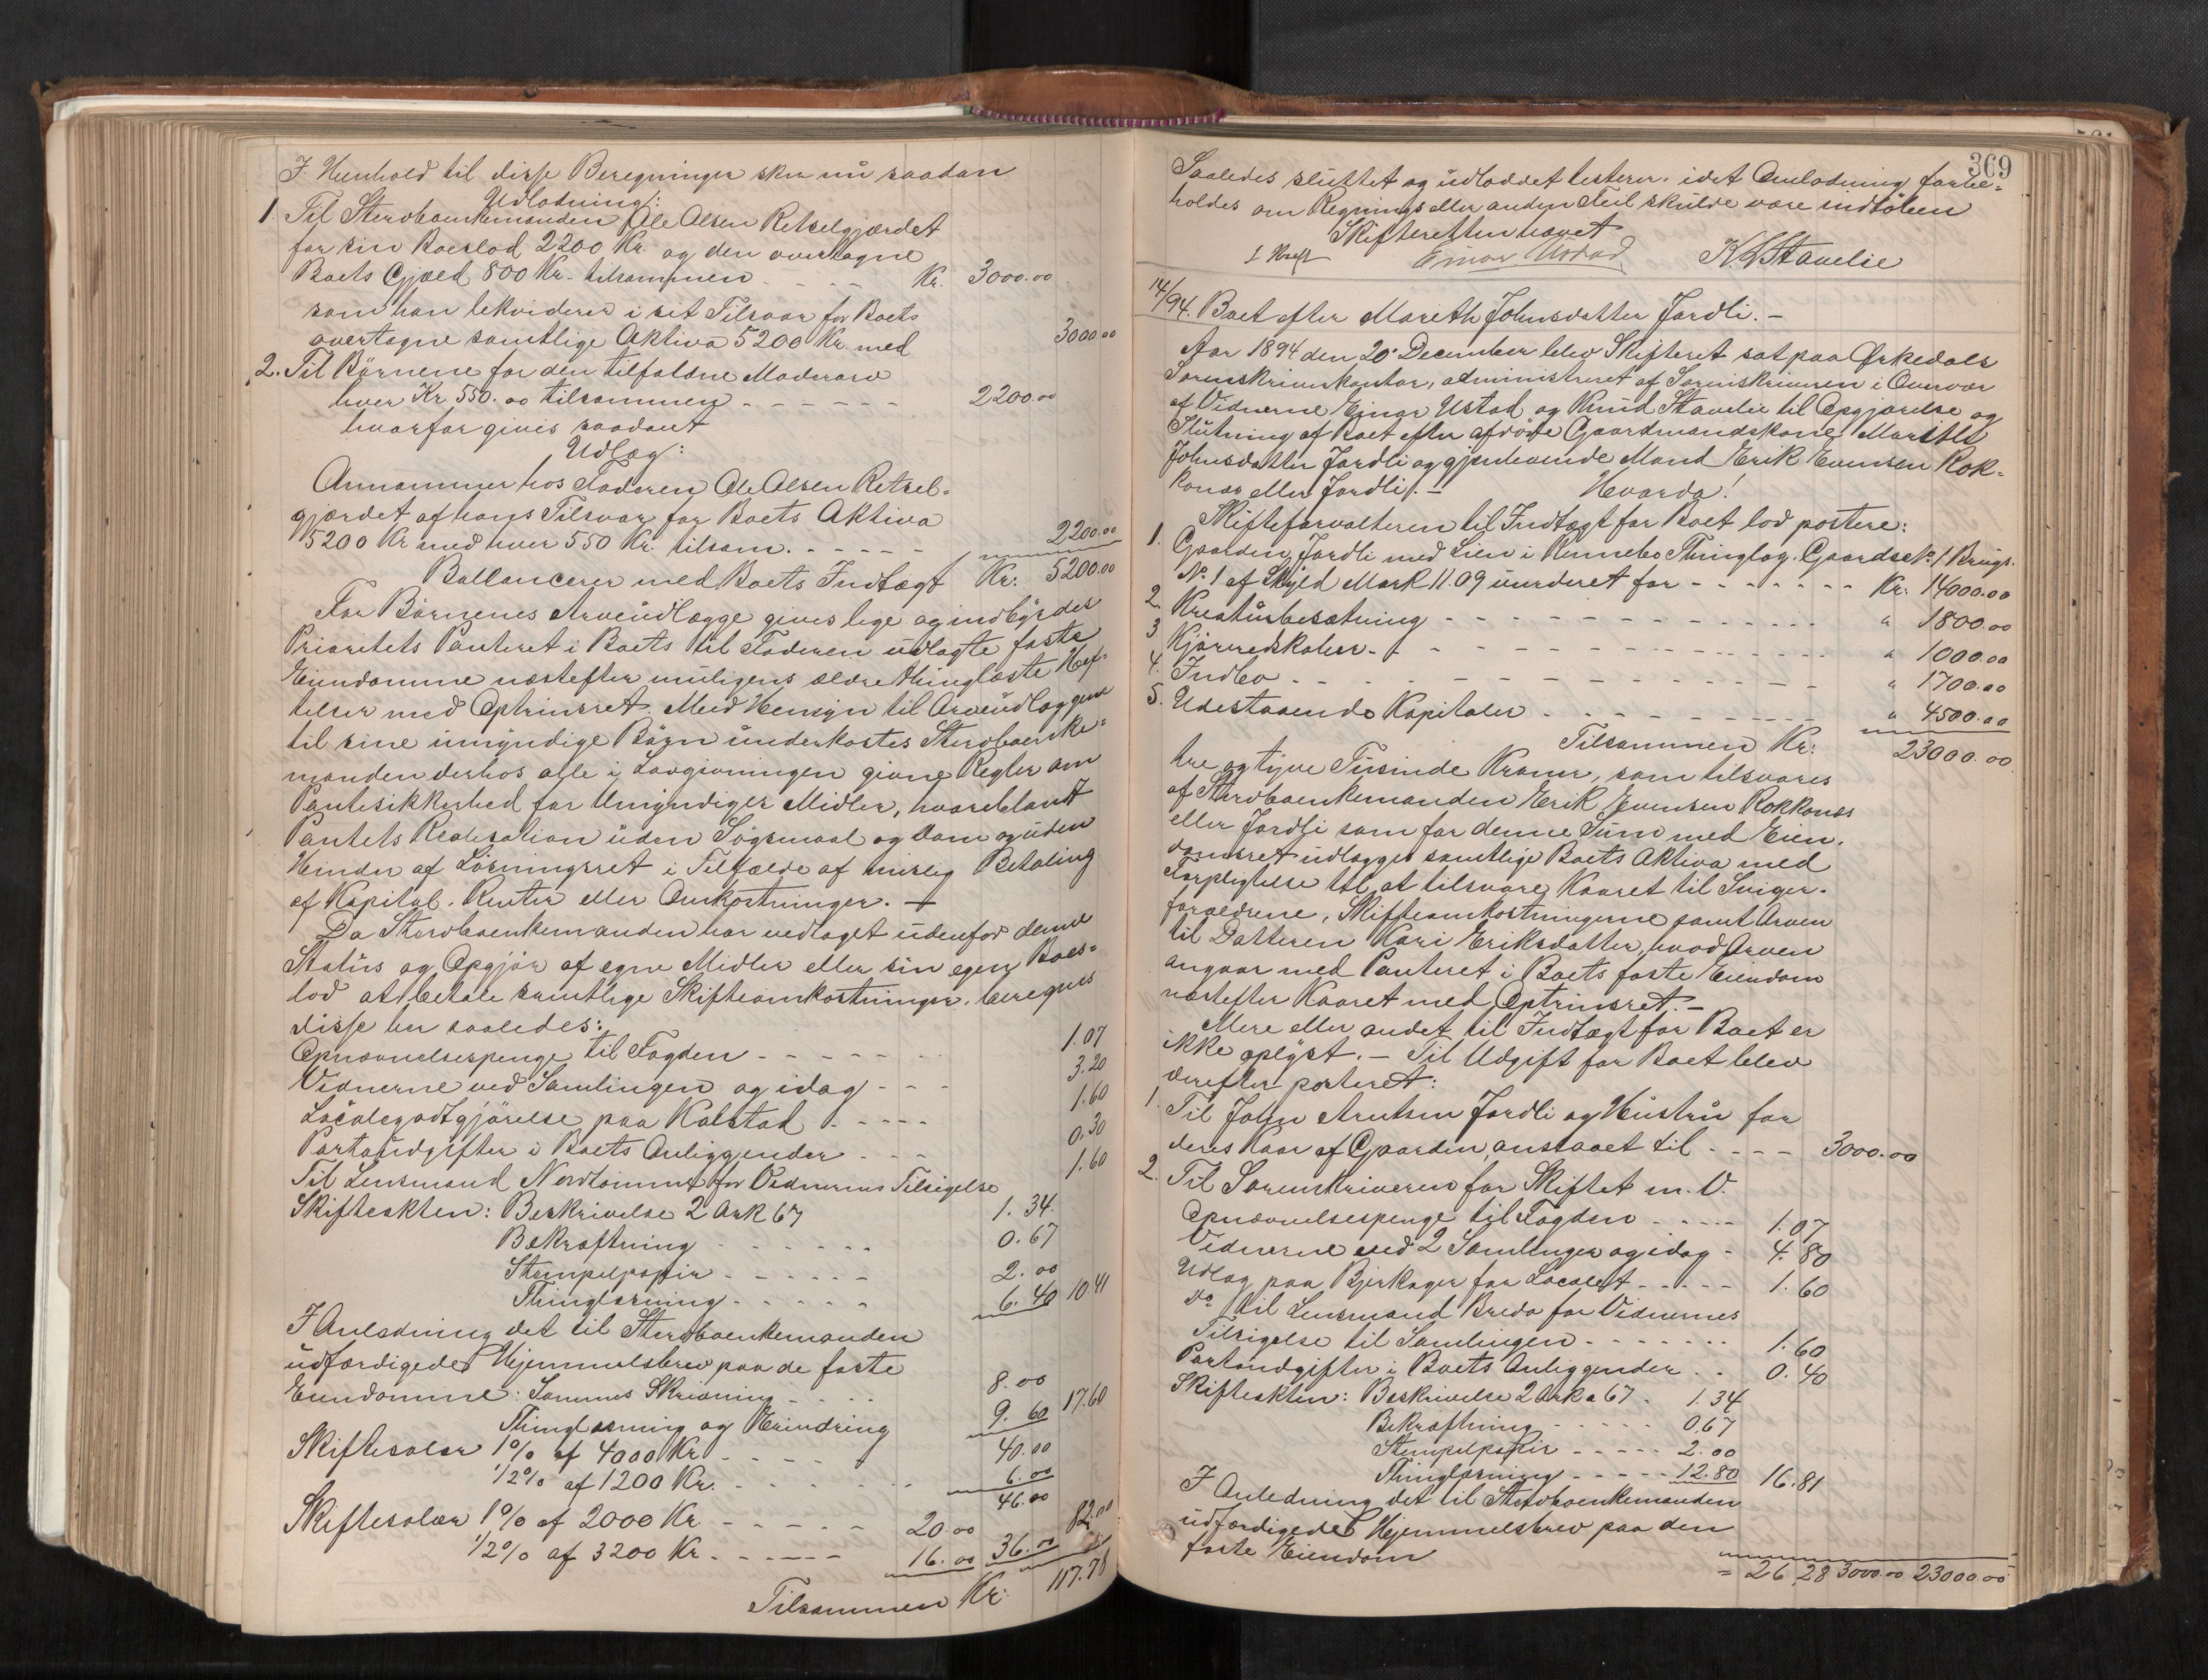 I Henhold til disse Beregninger sker nu saadan
Udlodning:
1. Til Stervboenkemanden Ole Olsen Retselgjærdet
for sin Boeslod 2200 Kr. og den overtagne
Boets Gjæld 800 Kr. tilsammen - - - - Kr. 3000.00
som han lekviderer i sit Tilsvar for Boets
overtagne samtlige Aktiva 5200 Kr. med 3000.00
2. Til Börnene for den tilfaldne Moderarv
hver Kr 550.00 tilsammen - - - - - - 2200.00
hvorfor gives saadant
Udlæg:
Annammer hos Faderen Ole Olsen Retsel-
gjærdet af hans Tilsvar for Boets Aktiva
5200 Kr med hver 550 Kr. tilsam. - - - - - 2200.00
Ballancerer med Boets Indtægt Kr: 5200.00
For Börnenes Arveudlægge gives lige og indbyrdes
Prioritets Panteret i Boets til Faderen udlagte faste
Eiendomme næstefter muligens ældre thinglæste Hef-
telser med Optrinsret. Med Hensyn til Arveudlæggene
til sine umyndige Börn underkastes Stervboenke-
manden derhos alle i Lovgivningen givne Regler om
Pantesikkerhed for Umyndiges Midler, hvoriblandt
Pantets Realisation uden Sögsmaal og Dom og uden
Hinder af Lösningsret i Tilfælde af mislig Betaling
af Kapital. Renter eller Omkostninger. –
Da Stervboenkemanden har vedtaget udenfor denne
Status og Opgjör af egne Midler eller sin egen Boes-
lod at betale samtlige Skifteomkostninger, beregnes
disse her saaledes:
Opnævnelsespenge til Fogden - - - - - - - 1.07
Vidnerne ved Samlingen og idag - - - 3.20
Localegodtgjörelse paa Kalstad - - - - - 1.60
Portoudgifter i Boets Anliggender - - - 0.30
Til Lensmand Nordtömme for Vidnernes Tilsigelse 1.60
Skifteakten: Beskrivelse 2 Ark 67 1.34.
Bekræftning - - - - - - 0.67
Stempelpapir - - - - - - 2.00
Thinglæsning - - - - - 6.40 10.41
I Anledning det til Stervboenkemanden
udfærdigede Hjemmelsbrev paa de faste
Eiendomme: Sammes Skrivning - - - - 8.00
Thinglæsning og Erindring 9.60 17.60
Skiftesalær 1% af 4000 Kr - - - - - 40.00
1/2% af 1200 Kr. - - - - - - 6.00
46.00
Skiftesalær 1% af 2000 Kr - - - - - 20.00
1/2% af 3200 Kr. - - - - - 16.00 36.00 82.00
Tilsammen Kr: 117.78
369
Saaledes sluttet og udloddet testerer, idet Omlodning forbe-
holdes om Regnings eller anden Feil skulde være indlöben
Skifteretten hævet
Einar Ustad K Stavelie
14/94. Boet efter Mareth Johnsdatter Jordli. –
Aar 1894 den 20 December blev Skifteret sat paa Ørkedals
Sorenskriverkontor, administreret af Sorenskriveren i Overvær
af Vidnerne Einar Ustad og Knud Stavelie til Opgjörelse og
Slutning af Boet efter afdöde Gaardmandskone Marith
Johnsdatter Jordli og gjenlevende Mand Erik Evensen Rok-
konæs eller Jordli. – Hvorda!
Skifteforvalteren til Indtægt for Boet lod postere:
1. Gaarden Jordli med Lien i Rennebo Thinglag. Gaards No. 1 Brugs.
No. 1 af Skyld Mark 11.09 vurderet for - - - - - - - Kr: 14000.00
2. Kreaturbesætning - - - - - - - - - - - - " 1800.00
3. Kjöreredskaber - - - - - - - - - - - - " 1000.00
4. Indbo - - - - - - - - - - - - - - " 1700.00
5. Udestaaende Kapitaler - - - - - - - - - " 4500.00
Tilsammen Kr: 23000.00
tre og tyve Tusinde Kroner, som tilsvares
af Stervboenkemanden Erik Evensen Rokkonæs
eller Jordli som for denne Sum med Eien-
domsret udlægges samtlige Boets Aktiva med
Forpligtelse til at tilsvare Kaaret til Sviger-
forældrene, Skifteomkostningerne samt Arven
til Datteren Kari Eriksdatter, hvad Arven
angaar med Panteret i Boets faste Eiendom
næstefter Kaaret med Optrinsret. –
Mere eller andet til Indtægt for Boet er
ikke oplyst. – Til Udgift for Boet blev
derefter posteret:
1. Til John Arntsen Jordli og Hustru for
deres Kaar af Gaarden, anslaaet til - - - - 3000.00
2. Til Sorenskriveren for Skiftet m. V.
Opnævnelsespenge til Fogden - - - - - 1.07
Vidnerne ved 2 Samlinger og idag - 4.80
Udlæg paa Bjerkager for Localet - - - - - 1.60
do til Lensmand Bredo for Vidnernes
Tilsigelse til Samlingen - - - - - - - 1.60
Portoudgifter i Boets Anliggender - - 0.40
Skifteakten: Beskrivelse 2 Ark a 67 - 1.34
Bekræftning - - - - - 0.67
Stempelpapir - - - - - 2.00
Thinglæsning - - - - - 12.80 16.81
I Anledning det til Stervboenkemanden
udfærdigede Hjemmelsbrev paa den
faste Eiendom
= 26,28 3000.00 23000.00